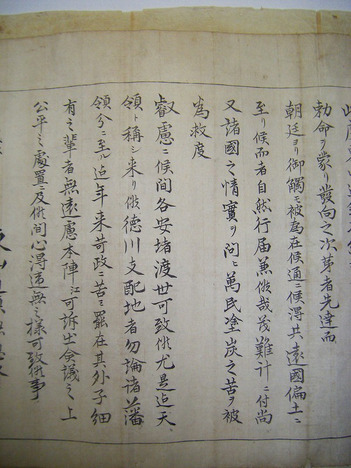 勅命ヲ蒙リ發向之次第者先達而
朝廷ヨリ御觸ニ被為在候通ニ候得共遠國偏土ニ
至リ候而者自然行届兼候哉茂難計ニ付尚
又諸國之情實ヲ問ヒ萬民塗炭之苦ヲ被
為救度
叡慮ニ候間各安堵渡世可致候尤是迠天
領ト稱シ来リ候德川支配地者勿論諸藩
領分ニ至ル迠年来苛政ニ苦ミ罷在其外子細
有之輩者無遠慮本陣江可訴出僉議之上
公平之處置ニ及候間心得違無之様可致候事